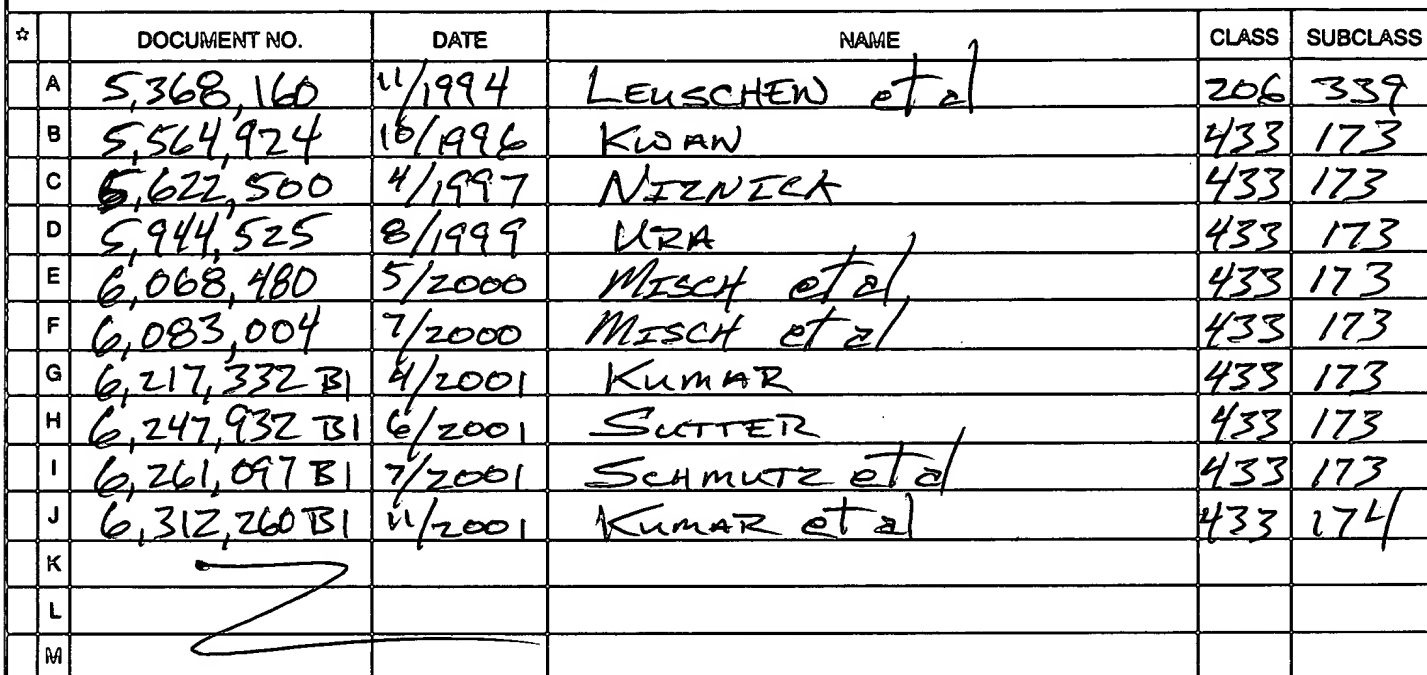 ☆ DOCUMENT NO. DATE NAME CLASS SUBCLASS
A 5,368,160 11/1994 LEUSCHEN et al 206 339
B 5,564,924 10/1996 KWAN 433 173
C 5,622,500 4/1997 NIZNICK 433 173
D 5,944,525 8/1999 URA 433 173
E 6,068,480 5/2000 MISCH et al, 433 173
F 6,083,004 7/2000 MISCH et al 433 173
G 6,217,332 B1 4/2001 KUMAR 433 173
H 6,247,932 B1 6/2001 SUTTER 433 173
I 6,261,097 B1 7/2001 SCHMUTZ et al 433 173
J 6,312,260 B1 11/2001 KUMAR et al 433 174
K
L
M